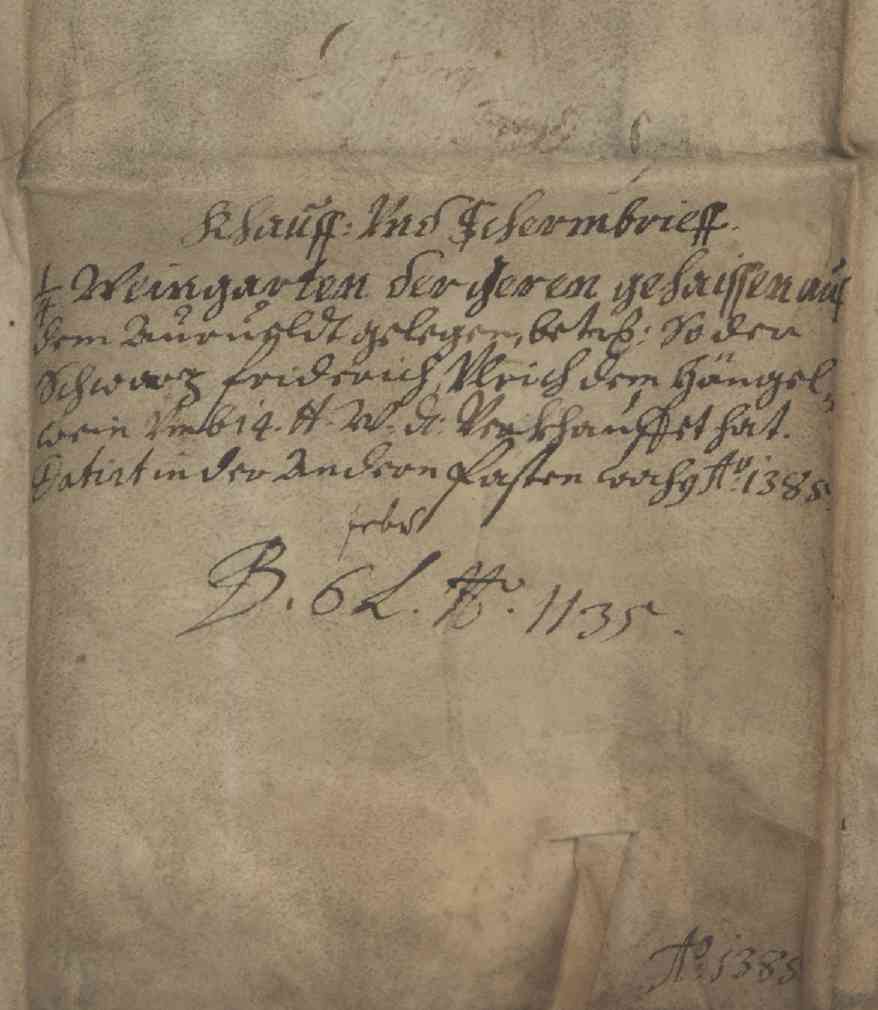 Khauff: Vnd Schermbrieff.
1/4 Weingarten der Geren gehaissen auf
dem Aurueldt gelegen, betr: So der
Schwarz friderich, Vlrich dem Hängel,,
wein Vmb 14. tt. W. d. Verkhauffet hat.
Datirt in der Andern fasten woch Ao. 1388
febr
B. 6 L. No. 1135.
Ao. 1388